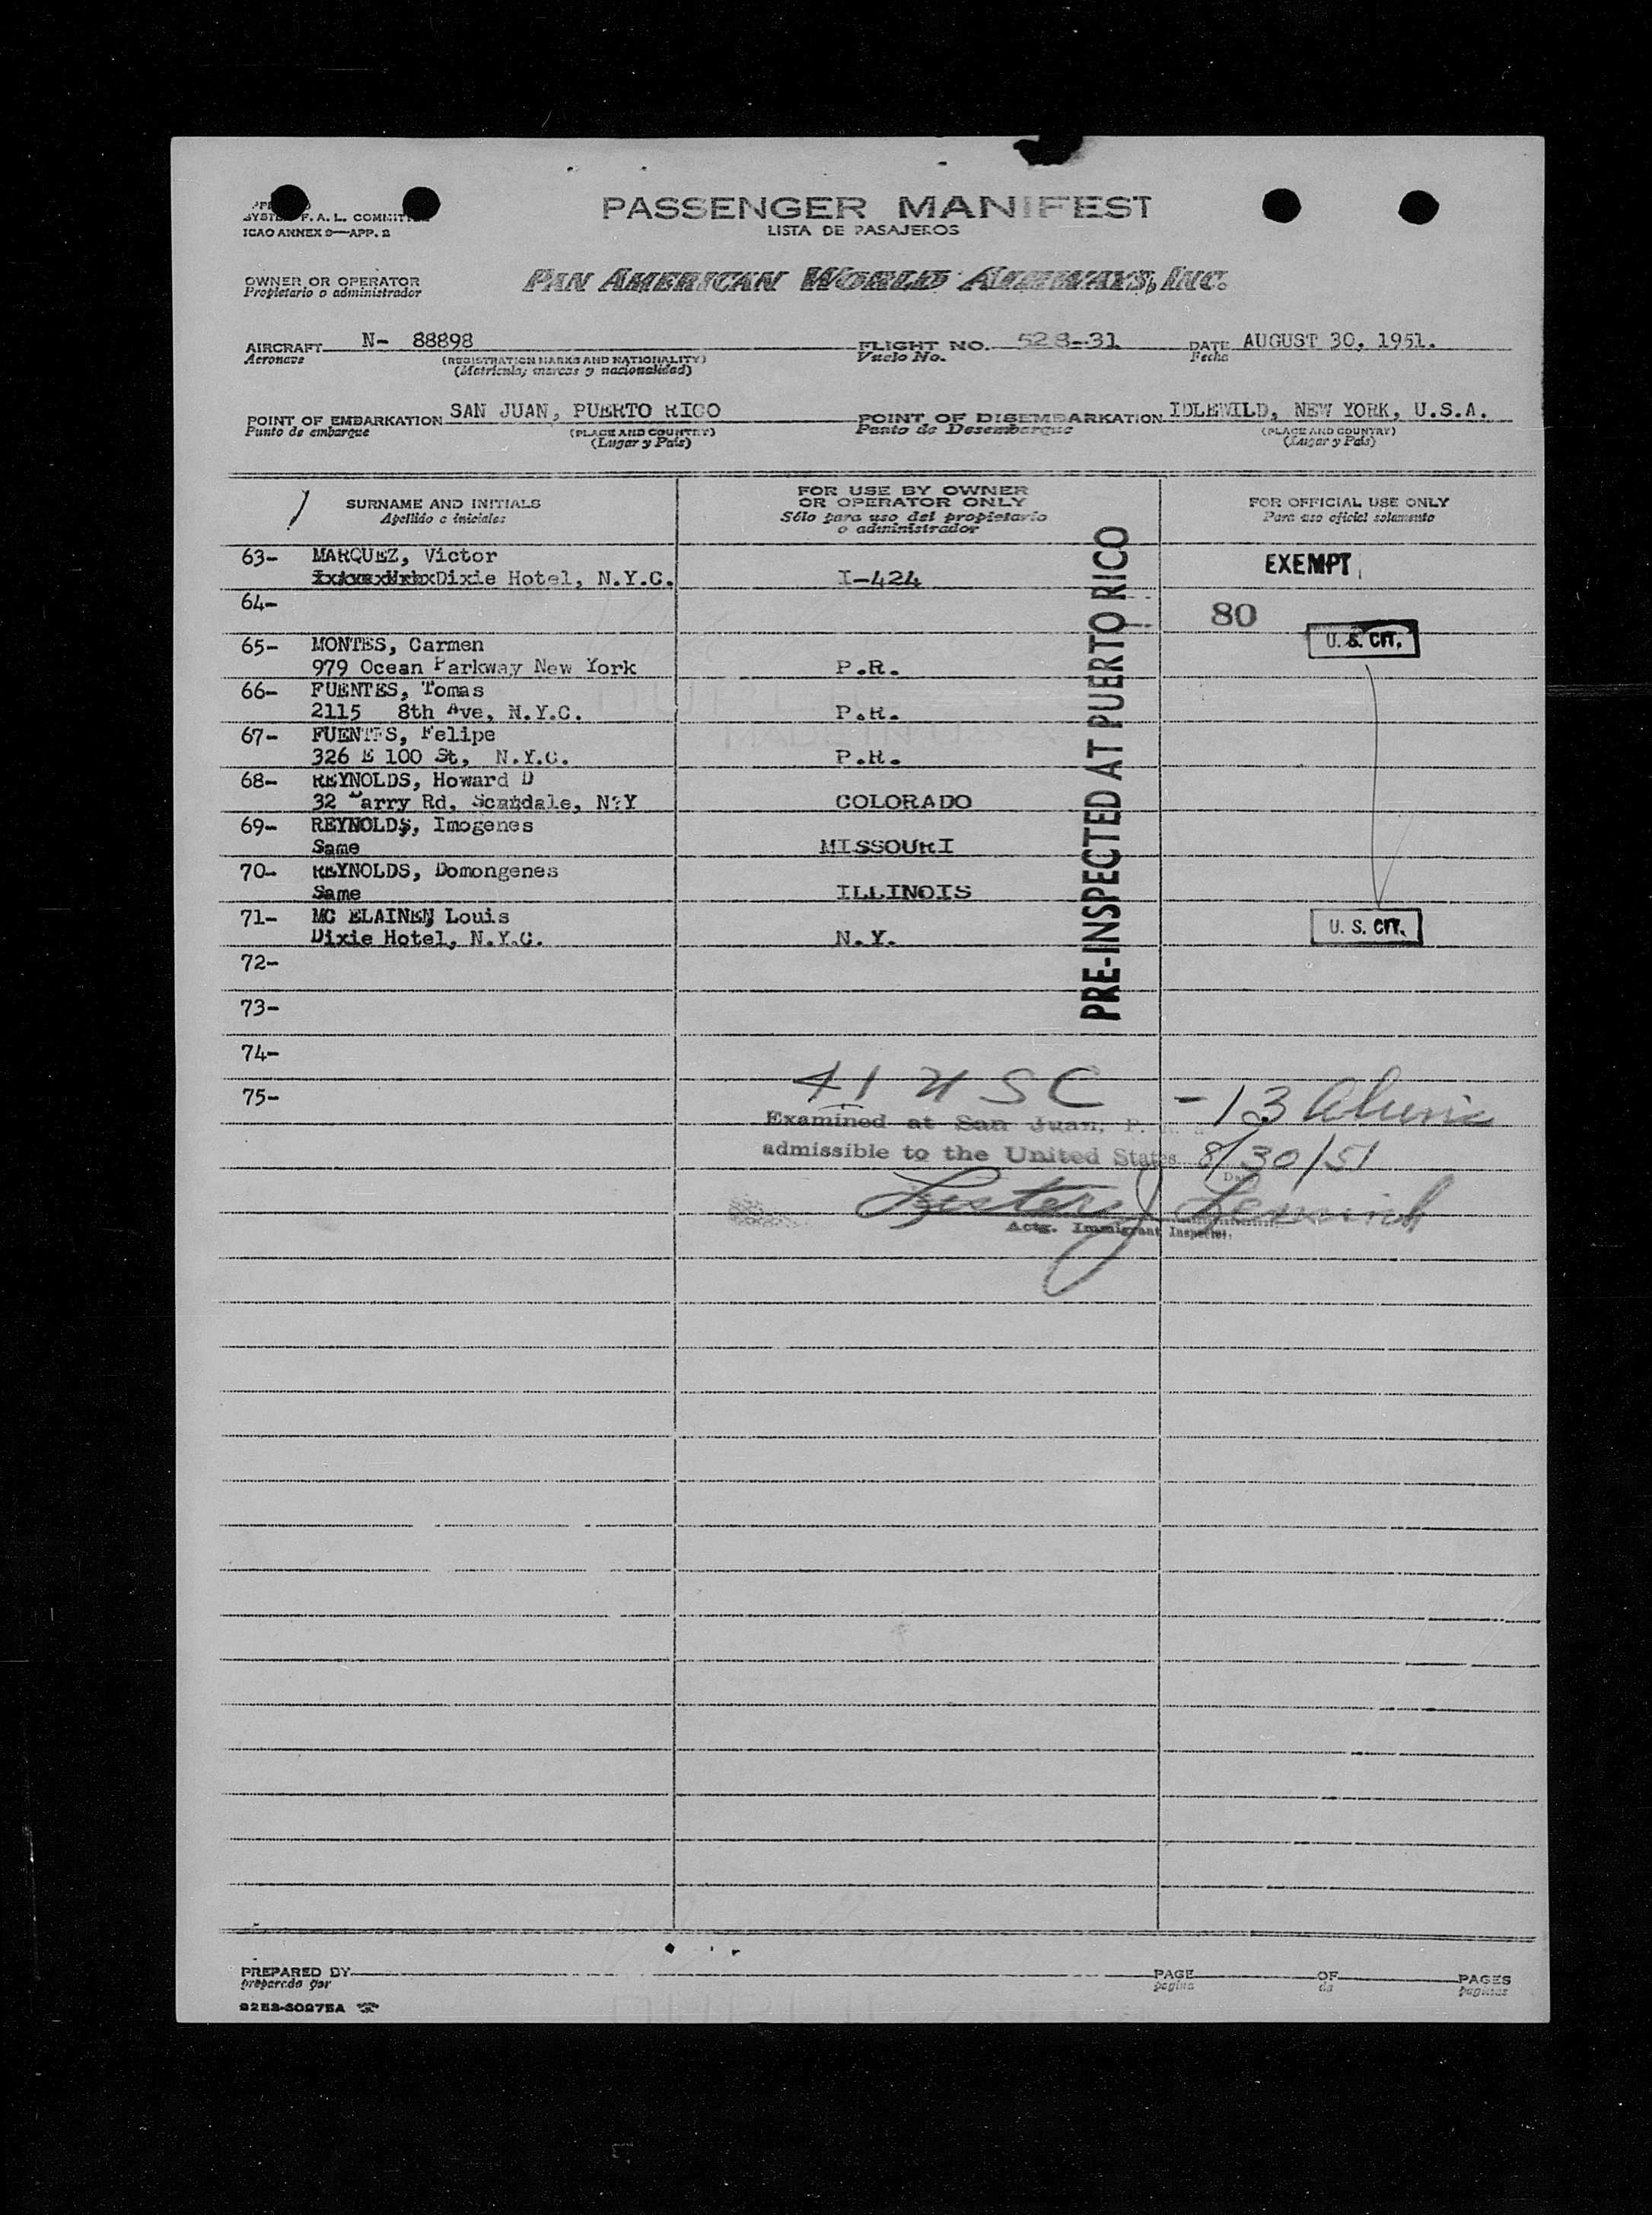 SYSTEM F. A. L. COMMITTEE
ICAO ANNEX 9—APP. 2
PASSENGER MANIFEST
LISTA DE PASAJEROS
OWNER OR OPERATOR
Propietario o administrador
PAN AMERICAN WORLD AIRWAYS, INC.
AIRCRAFT N- 88898 FLIGHT NO. 528-31 DATE AUGUST 30, 1951.
Aeronave (REGISTRATION MARKS AND NATIONALITY) Vuelo No. Fecha
(Matrícula; marcas y nacionalidad)
POINT OF EMBARKATION SAN JUAN, PUERTO RICO POINT OF DISEMBARKATION IDLEWILD, NEW YORK, U.S.A.
Punto de embarque (PLACE AND COUNTRY) Punto de Desembarque (PLACE AND COUNTRY)
(Lugar y País) (Lugar y País)
SURNAME AND INITIALS
Apellido e iniciales
FOR USE BY OWNER
OR OPERATOR ONLY
Sólo para uso del propietario
o administrador
FOR OFFICIAL USE ONLY
Para uso oficial solamente
63- MARQUEZ, Victor EXEMPT
Dixie Hotel, N.Y.C. I-424
64- 80
U. S. CIT.
65- MONTES, Carmen
979 Ocean Parkway New York P.R.
66- FUENTES, Tomas
2115 8th Ave, N.Y.C. P.R.
67- FUENTES, Felipe
326 E 100 St, N.Y.C. P.R.
68- REYNOLDS, Howard D
32 Parry Rd, Scandale, N?Y COLORADO
69- REYNOLDS, Imogenes
Same MISSOURI
70- REYNOLDS, Domongenes
Same ILLINOIS
71- MC ELAINEN, Louis U. S. CIT.
Dixie Hotel, N.Y.C. N.Y.
72-
73-
74-
75-
PRE-INSPECTED AT PUERTO RICO
41 USC - 13 Aliens
Examined at San Juan, P. R.
admissible to the United States 8/30/51
Date
Lester J
Actg. Immigrant Inspector.
PREPARED BY PAGE OF PAGES
preparado por página de páginas